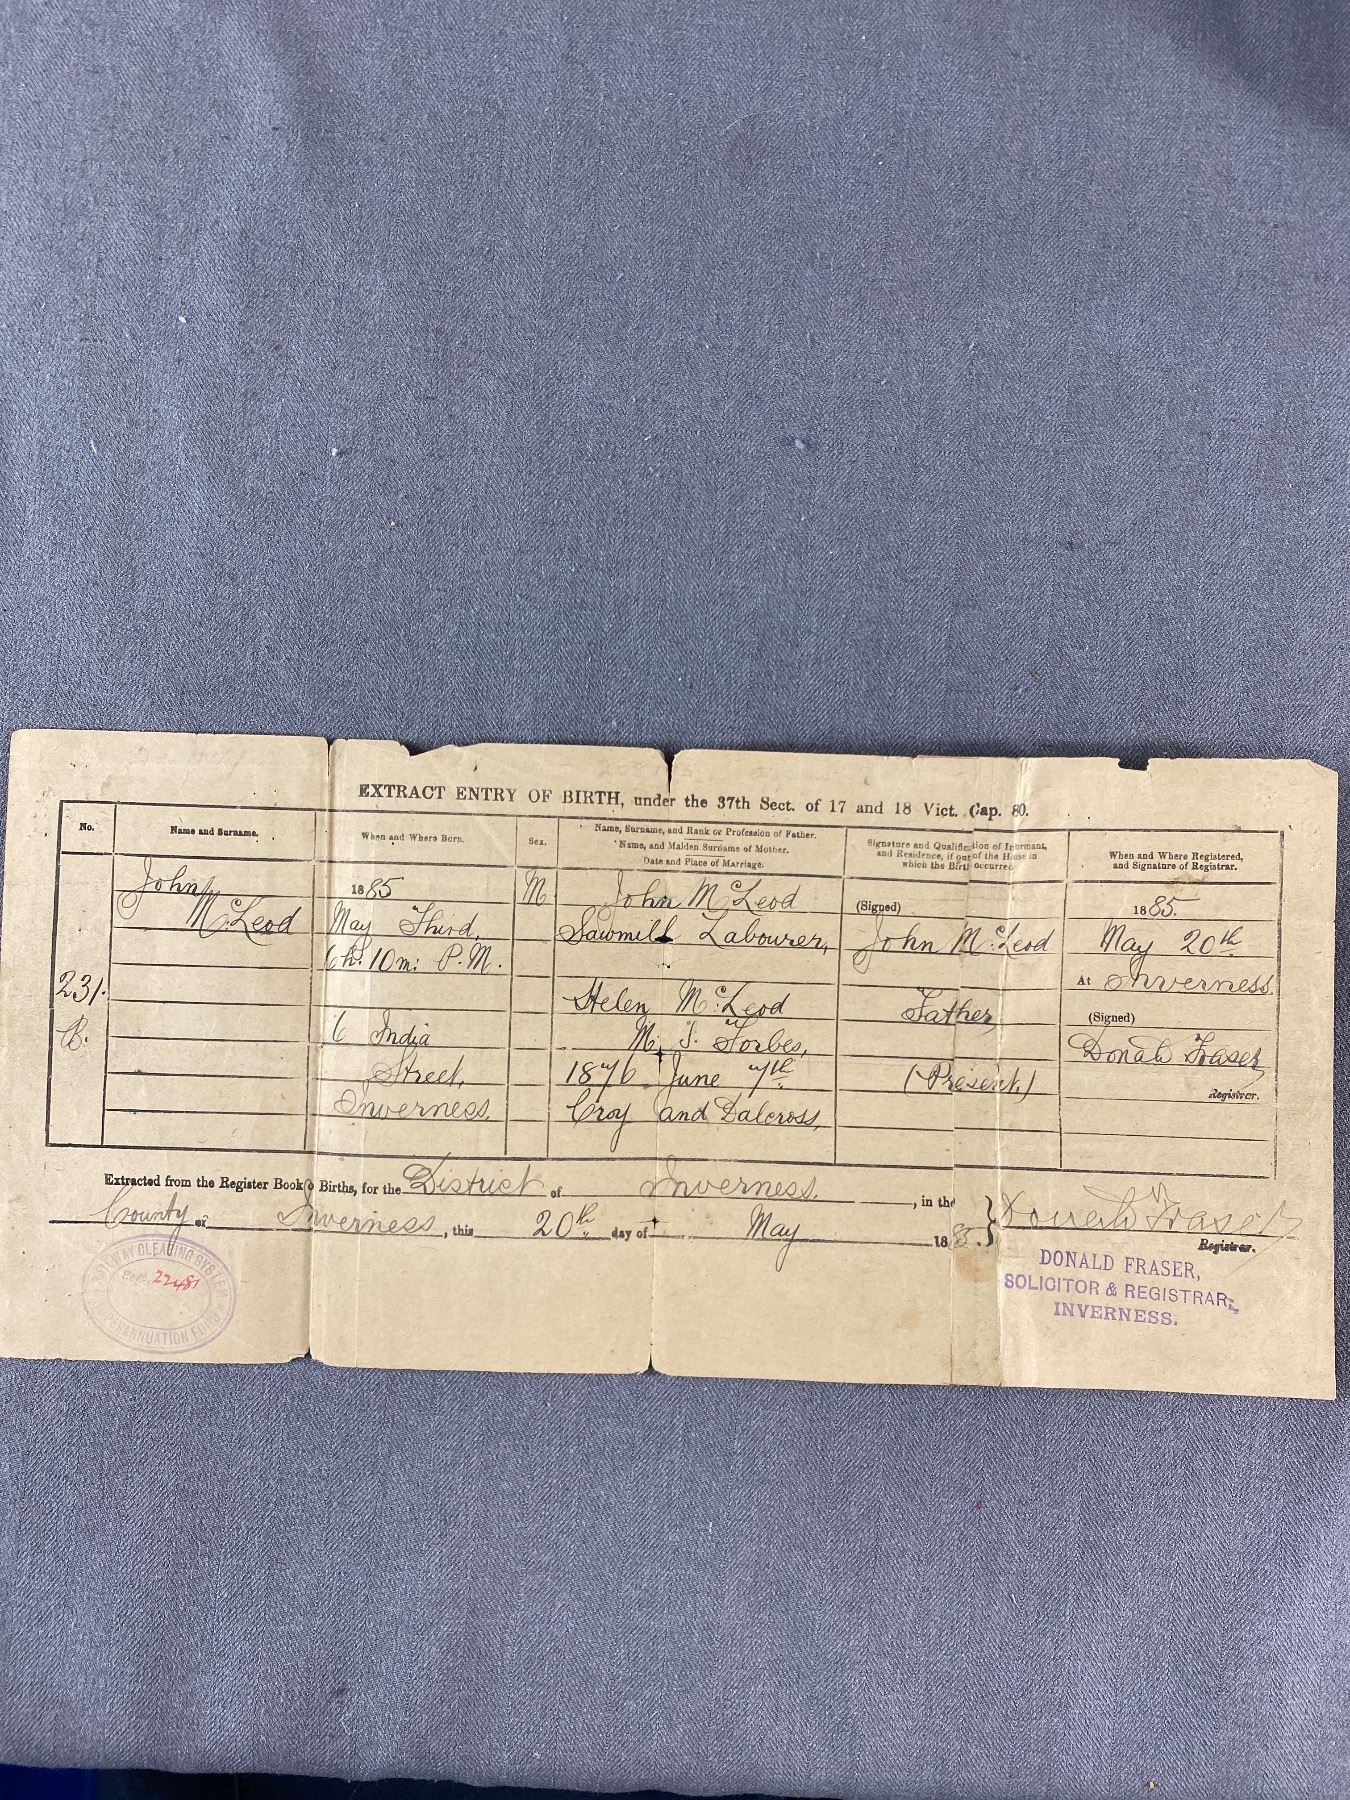 EXTRACT ENTRY OF BIRTH, under the 37th Sect. of 17 and 18 Vict. Cap. 80.
No.
Name and Surname.
When and Where Born.
Sex.
Name, Surname, and Rank or Profession of Father.
Name, and Maiden Surname of Mother.
Date and Place of Marriage.
Signature and Qualification of Informant,
and Residence, if out of the House in
which the Birth occurred.
When and Where Registered,
and Signature of Registrar.
231.
B.
John
McLeod
1885
May Third,
6h. 10m. P.M.
6 India
Street,
Inverness.
M
John McLeod
Sawmill Labourer,
Helen McLeod
M. S. Forbes,
1876 June 7th
Croy and Dalcross,
(Signed)
John McLeod
Father
(Present)
1885.
May 20th
At Inverness.
(Signed)
Donald Fraser
Registrar.
Extracted from the Register Book of Births, for the District of Inverness, in the
County of Inverness, this 20th day of May 1885.
Donald Fraser
Registrar.
DONALD FRASER,
SOLICITOR & REGISTRAR,
INVERNESS.
RAILWAY CLEARING SYSTEM
SUPERANNUATION FUND
Regd. 22481